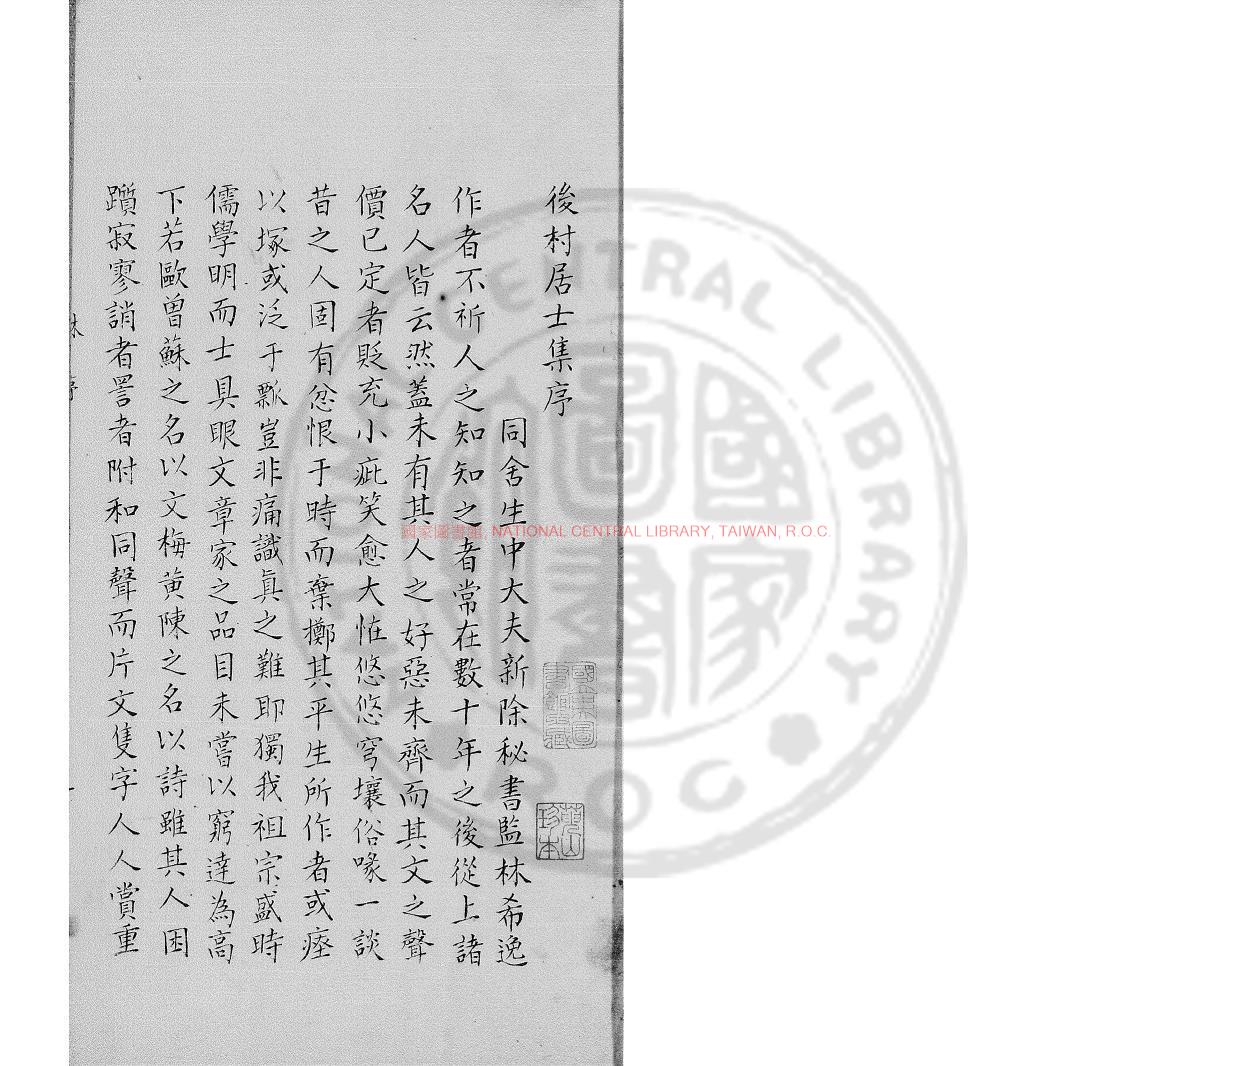 後村居士集序
同舍生中大夫新除秘書監林希逸
作者不祈人之知知之者常在數十年之後從上諸
名人皆云然蓋未有其人之好惡未齊而其文之聲
價已定者貶充小疵笑愈大恠悠悠穹壤俗喙一談
昔之人固有忿恨于時而棄擲其平生所作者或瘞
以塚或泛于瓢豈非痛識真之難耶獨我祖宗盛時
儒學明而士具眼文章家之品目未嘗以窮達為高
下若歐曾蘇之名以文梅黄陳之名以詩雖其人困
躓寂寥誚者詈者附和同聲而片文隻字人人賞重
林 序
國家圖書館藏
珍本
國家圖書館, NATIONAL CENTRAL LIBRARY, TAIWAN, R.O.C.
NATIONAL CENTRAL LIBRARY
ROC